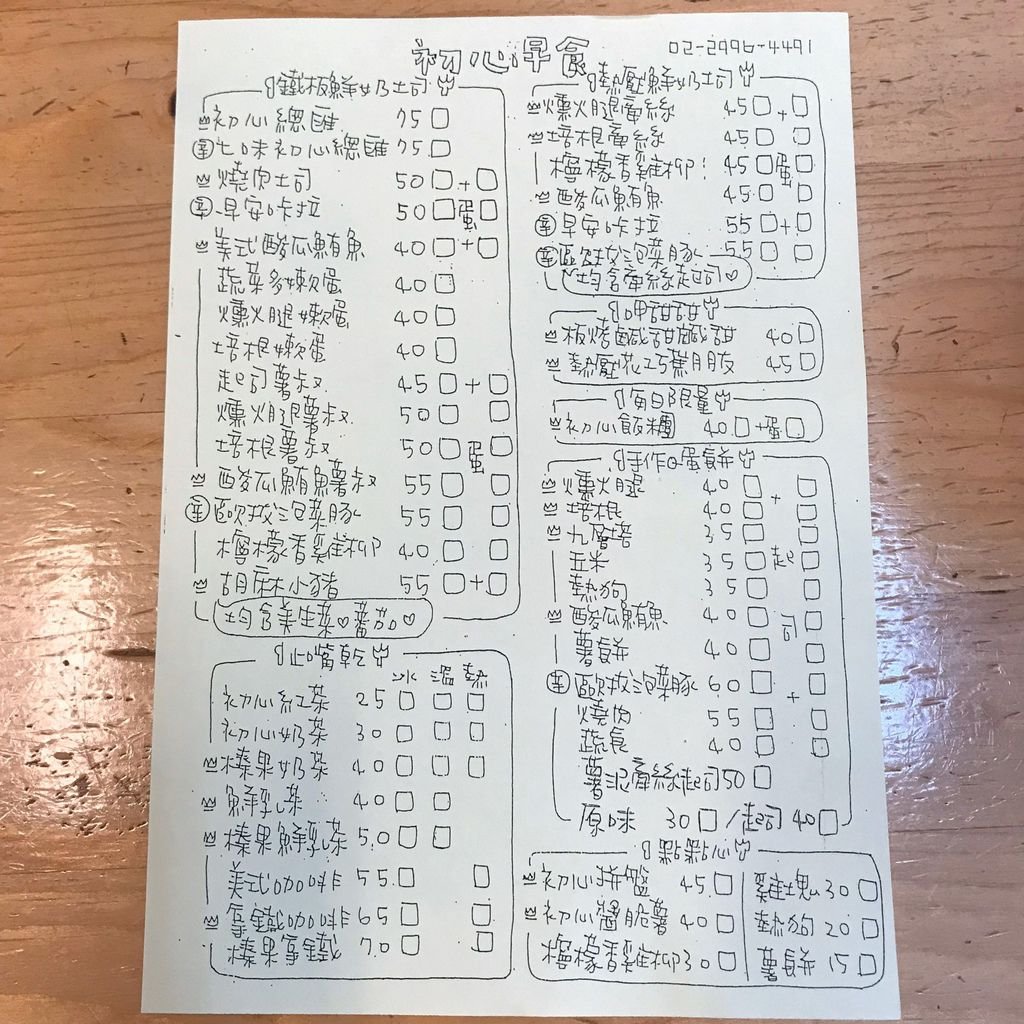 初心早食 02-2996-4491
鐵板鮮奶土司
初心總匯 75
辛 七味初心總匯 75
燒肉土司 50 +
辛 早安咔拉 50 蛋
美式酸瓜鮪魚 40 +
蔬菜多嫩蛋 40
燻火腿嫩蛋 40
培根嫩蛋 40
起司薯叔 45 +
燻火腿薯叔 50
培根薯叔 50 蛋
酸瓜鮪魚薯叔 55
辛 歐拔泡菜豚 55
檸檬香雞柳 40
胡麻小豬 55 +
均含美生菜♡蕃茄♡
止嘴乾
冰 溫 熱
初心紅茶 25
初心奶茶 30
榛果奶茶 40
鮮乳茶 40
榛果鮮乳茶 50
美式咖啡 55
拿鐵咖啡 65
榛果拿鐵 70
熱壓鮮奶土司
燻火腿牽絲 45 +
培根牽絲 45
檸檬香雞柳! 45 蛋
酸瓜鮪魚 45
辛 早安咔拉 55 +
辛 歐拔泡菜豚 55
均含牽絲起司♡
呷甜甜
板烤鹹甜鹹甜 40
熱壓花巧蕉朋友 45
每日限量
初心飯糰 40 +蛋
手作の蛋餅
燻火腿 40 +
培根 40
九層塔 35
玉米 35 起
熱狗 35
酸瓜鮪魚 40 司
薯餅 40
辛 歐拔泡菜豚 60 +
燒肉 55
蔬食 40
薯泥牽絲起司 50
原味 30 / 起司 40
點點心
初心拼籃 45
初心醬脆薯 40
檸檬香雞柳 30
雞塊 30
熱狗 20
薯餅 15